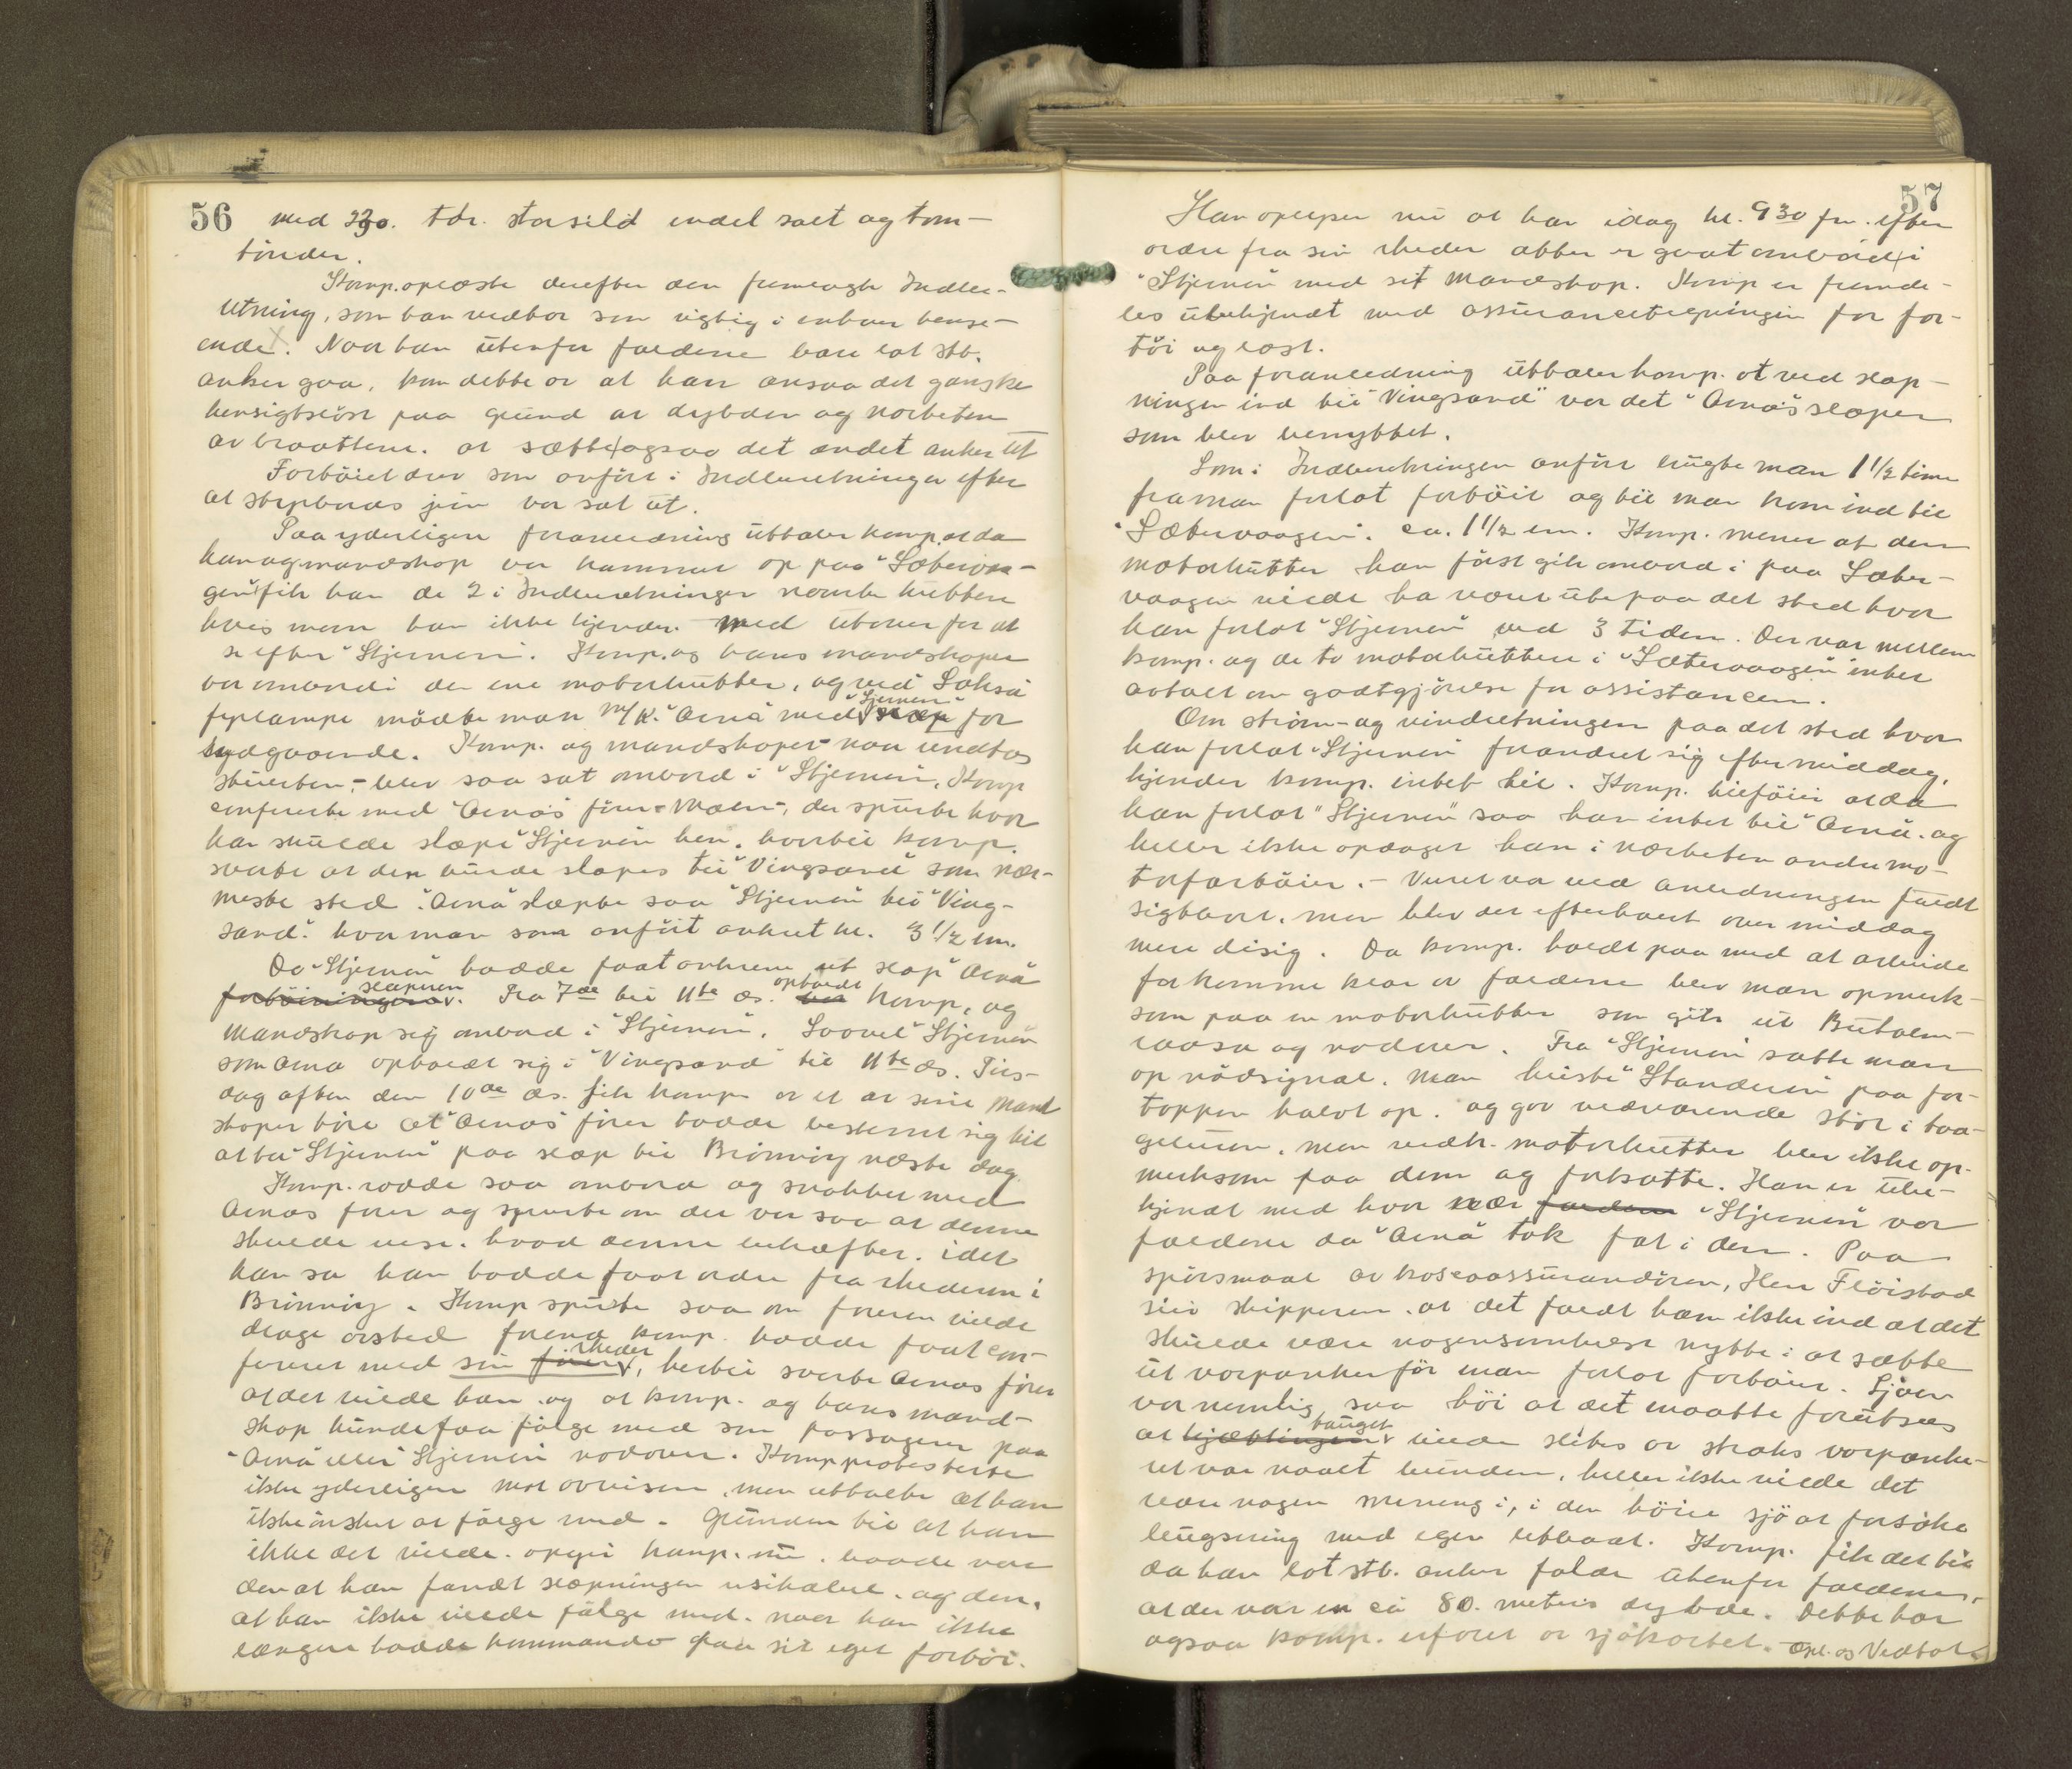 56
med 230. tdr. storsild endel salt og tom-
tønder.
Komp. oplæste derefter den fremlagte Indbe-
retning, som han vedtar som rigtig i enhver hense-
ende. Naar han utenfor faldene bare lot stb.
anker gaa, kom dette av at han ansaa det ganske
hensigtsløst paa grund av dybden og nærheten
av braattene. at sætte ogsaa det andet anker ut
Fortøiet drev som anført i Indberetningen efter
at styrbords jern var sat ut.
Paa yderligere foranledning uttaler komp. at da
han og mandskap var kommet op paa "Sætervaa-
gen" fik han de 2 i Indberetningen nævnte kuttere
hvis navn han ikke kjender. med utover for at
se efter "Stjernen". Komp. og hans mandskaper
var ombord i den ene motorkutter, og ved Soksa
fyrlampe mødte man M/K. "Arna" med "Stjernen" slæp for
sydgaaende. Komp. og mandskapet - naar undtas
stuerten, - blev saa sat ombord i "Stjernen", Komp
confererte med "Arnas" fører - Mælen -, der spurte hvor
han skulde slæpe "Stjernen" hen, hvortil komp.
svarte at den burde slæpes til "Vingsand" som nær-
meste sted. "Arna" slæpte saa "Stjernen" til "Ving-
sand" hvor man som anført ankret kl. 3 1/2 em.
Da "Stjernen" hadde faat ankrene ut slap "Arna"
fortøiningene slæperen. Fra 7de til 11te ds. blev opholdt komp. og
mandskap sig ombord i "Stjernen". Saavel "Stjernen"
som Arna opholdt sig i "Vingsand" til 11te ds. Tirs-
dag aften den 10de ds. fik komp. av et av sine mand
skaper høre at "Arnas" fører hadde bestemt sig til
at ta "Stjernen" paa slæp til Brønnøy næste dag.
Komp. rodde saa ombord og snakket med
Arnas fører og spurte om det var saa at denne
skulde reise. hvad denne bekræftet. idet
han sa han hadde faat ordre fra rhederen i
Brønnøy. Komp spurte saa om føreren vilde
drage avsted førend komp. hadde faat con-
ferert med sin fører rheder, hertil svarte Arnas fører
at det vilde han. og at komp. og hans mand-
skap kunde faa følge med som passagerer paa
"Arna" eller "Stjernen" nordover. Komp protesterte
ikke yderligere mot avreisen, men uttalte at han
ikke ønsket at følge med. Grunden til at han
ikke det vilde. opgir komp. nu. baade var
den at han fandt slæpningen usikaket. og den,
at han ikke vilde følge med. naar han ikke
længere hadde kommando paa sit eget fartøi.
57
Han oplyser nu at han idag kl. 9 30 fm. efter
ordre fra sin rheder atter er gaat ombord i
"Stjernen" med sit mandskap. Komp er fremde-
les ubekjendt med assurancetegningen for far-
tøi og last.
Paa foranledning uttaler komp. at ved slæp-
ningen ind til "Vingsand" var det "Arnas" slæper
som blev benyttet.
Som i Indberetningen anført brugte man 1 1/2 time
fra man forlot fartøiet og til man kom ind til
"Sætervaagen". ca. 1 1/2 em. Komp. mener at den
motorkutter han først gik ombord i paa Sæter-
vaagen vilde ha været ute paa det sted hvor
han forlot "Stjernen" ved 3 tiden. Der var mellem
komp. og de to motorkuttere i "Sætervaagen" intet
avtalt om godtgjørelse for assistancen.
Om strøm- og vindretningen paa det sted hvor
han forlot "Stjernen" forandret sig eftermiddag,
kjender komp. intet til. Komp. tilføier at da
han forlot "Stjernen" saa han intet til "Arna". og
heller ikke opdaget han i nærheten andre mo-
torfartøier. - Veiret var ved anledningen fuldt
sigtbart, men blev det efterhvert over middag
mere disig. Da komp. holdt paa med at arbeide
for komme klar av faldene blev man opmerk-
som paa en motorkutter som gik ut Buholm-
raasa og nordover. Fra "Stjernen" satte man
op nødsignal. man heiste "Standeren" paa for-
toppen halvt op. og gav vedvarende støt i taa-
geluren, men vedk. motorkutter blev ikke op-
merksom paa dem og fortsatte. Han er ube-
kjendt med hvor nær faldene "Stjernen" var
faldene da "Arna" tok fat i den. Paa
spørsmaal av kaskoassurandøren, Herr Fløistad
sier skipperen. at det faldt ham ikke ind at det
skulde være nogensomhelst nytte i at sætte
ut varpanker før man forlot fartøiet. Sjøen
var nemlig saa høi at det maatte forutsees
at kjættingen tauget vilde slites av straks varpanke-
ret var naadd bunden, heller ikke vilde det
være nogen mening i, i den høie sjø at forsøke
bugsering med egen letbaat. Komp. fik det til
da han lot stb. anker falde utenfor faldene,
at der var en ca 80. meters dybde. Dette har
ogsaa komp. erfaret av sjøkartet. - Opl. og Vedtat.